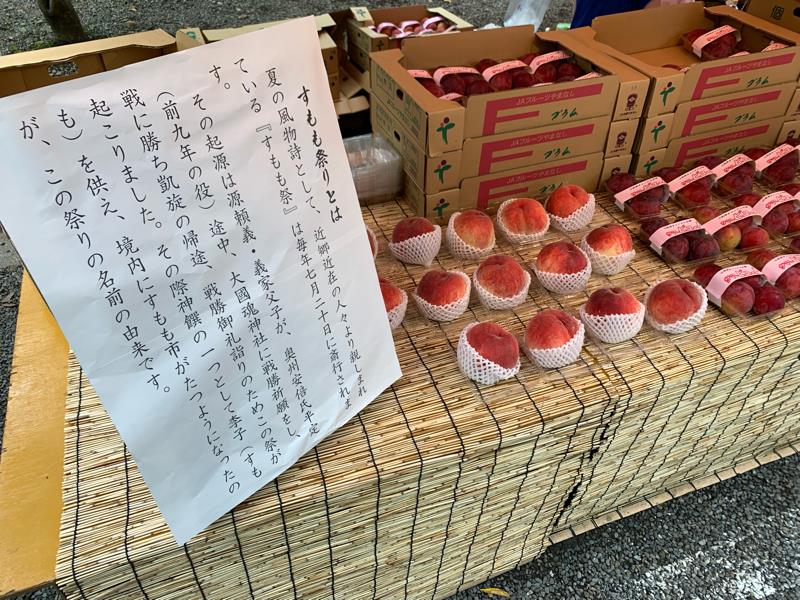 すもも祭りとは
夏の風物詩として、近郷近在の人々より親しまれ
ている『すもも祭』は毎年七月二十日に斎行されま
す。
その起源は源頼義・義家父子が、奥州安倍氏平定
（前九年の役）途中、大國魂神社に戦勝祈願をし、
戦に勝ち凱旋の帰途、戦勝御礼詣りのためこの祭が
起こりました。その際神饌の一つとして李子（すも
も）を供え、境内にすもも市がたつようになったの
が、この祭りの名前の由来です。
JAフルーツやまなし
JAフルーツやまなし
JAフルーツやまなし
JAフルーツやまなし
JAフルーツやまなし
個